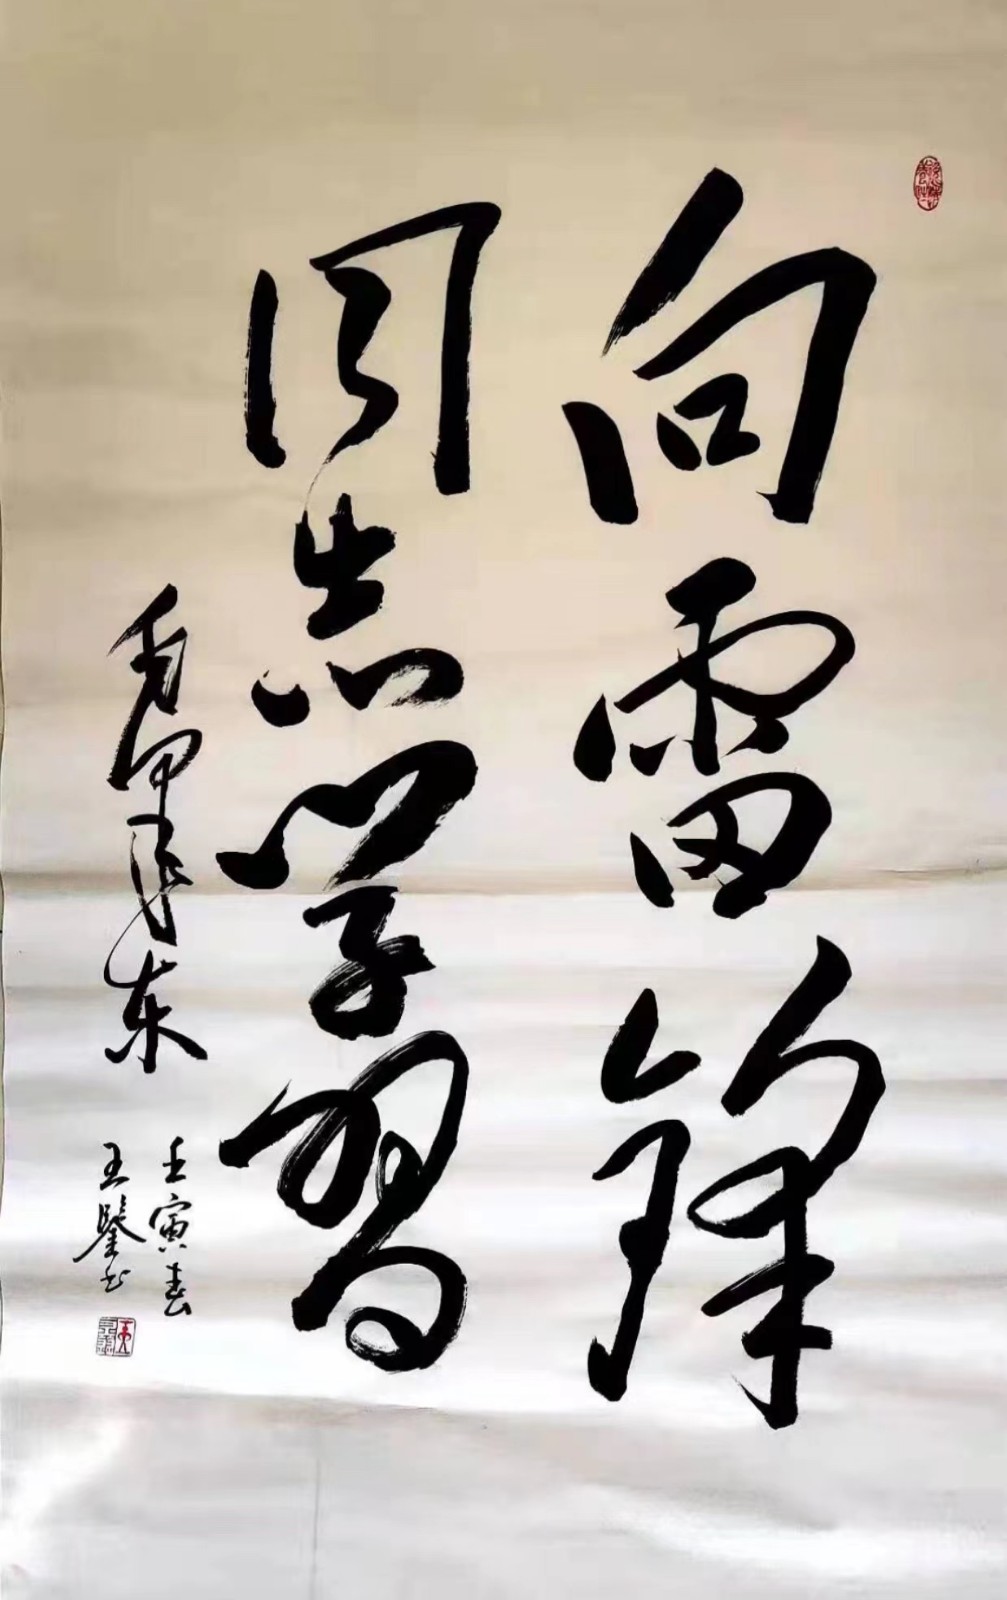 向雷锋
同志学习
毛泽东
壬寅春
王鑒书